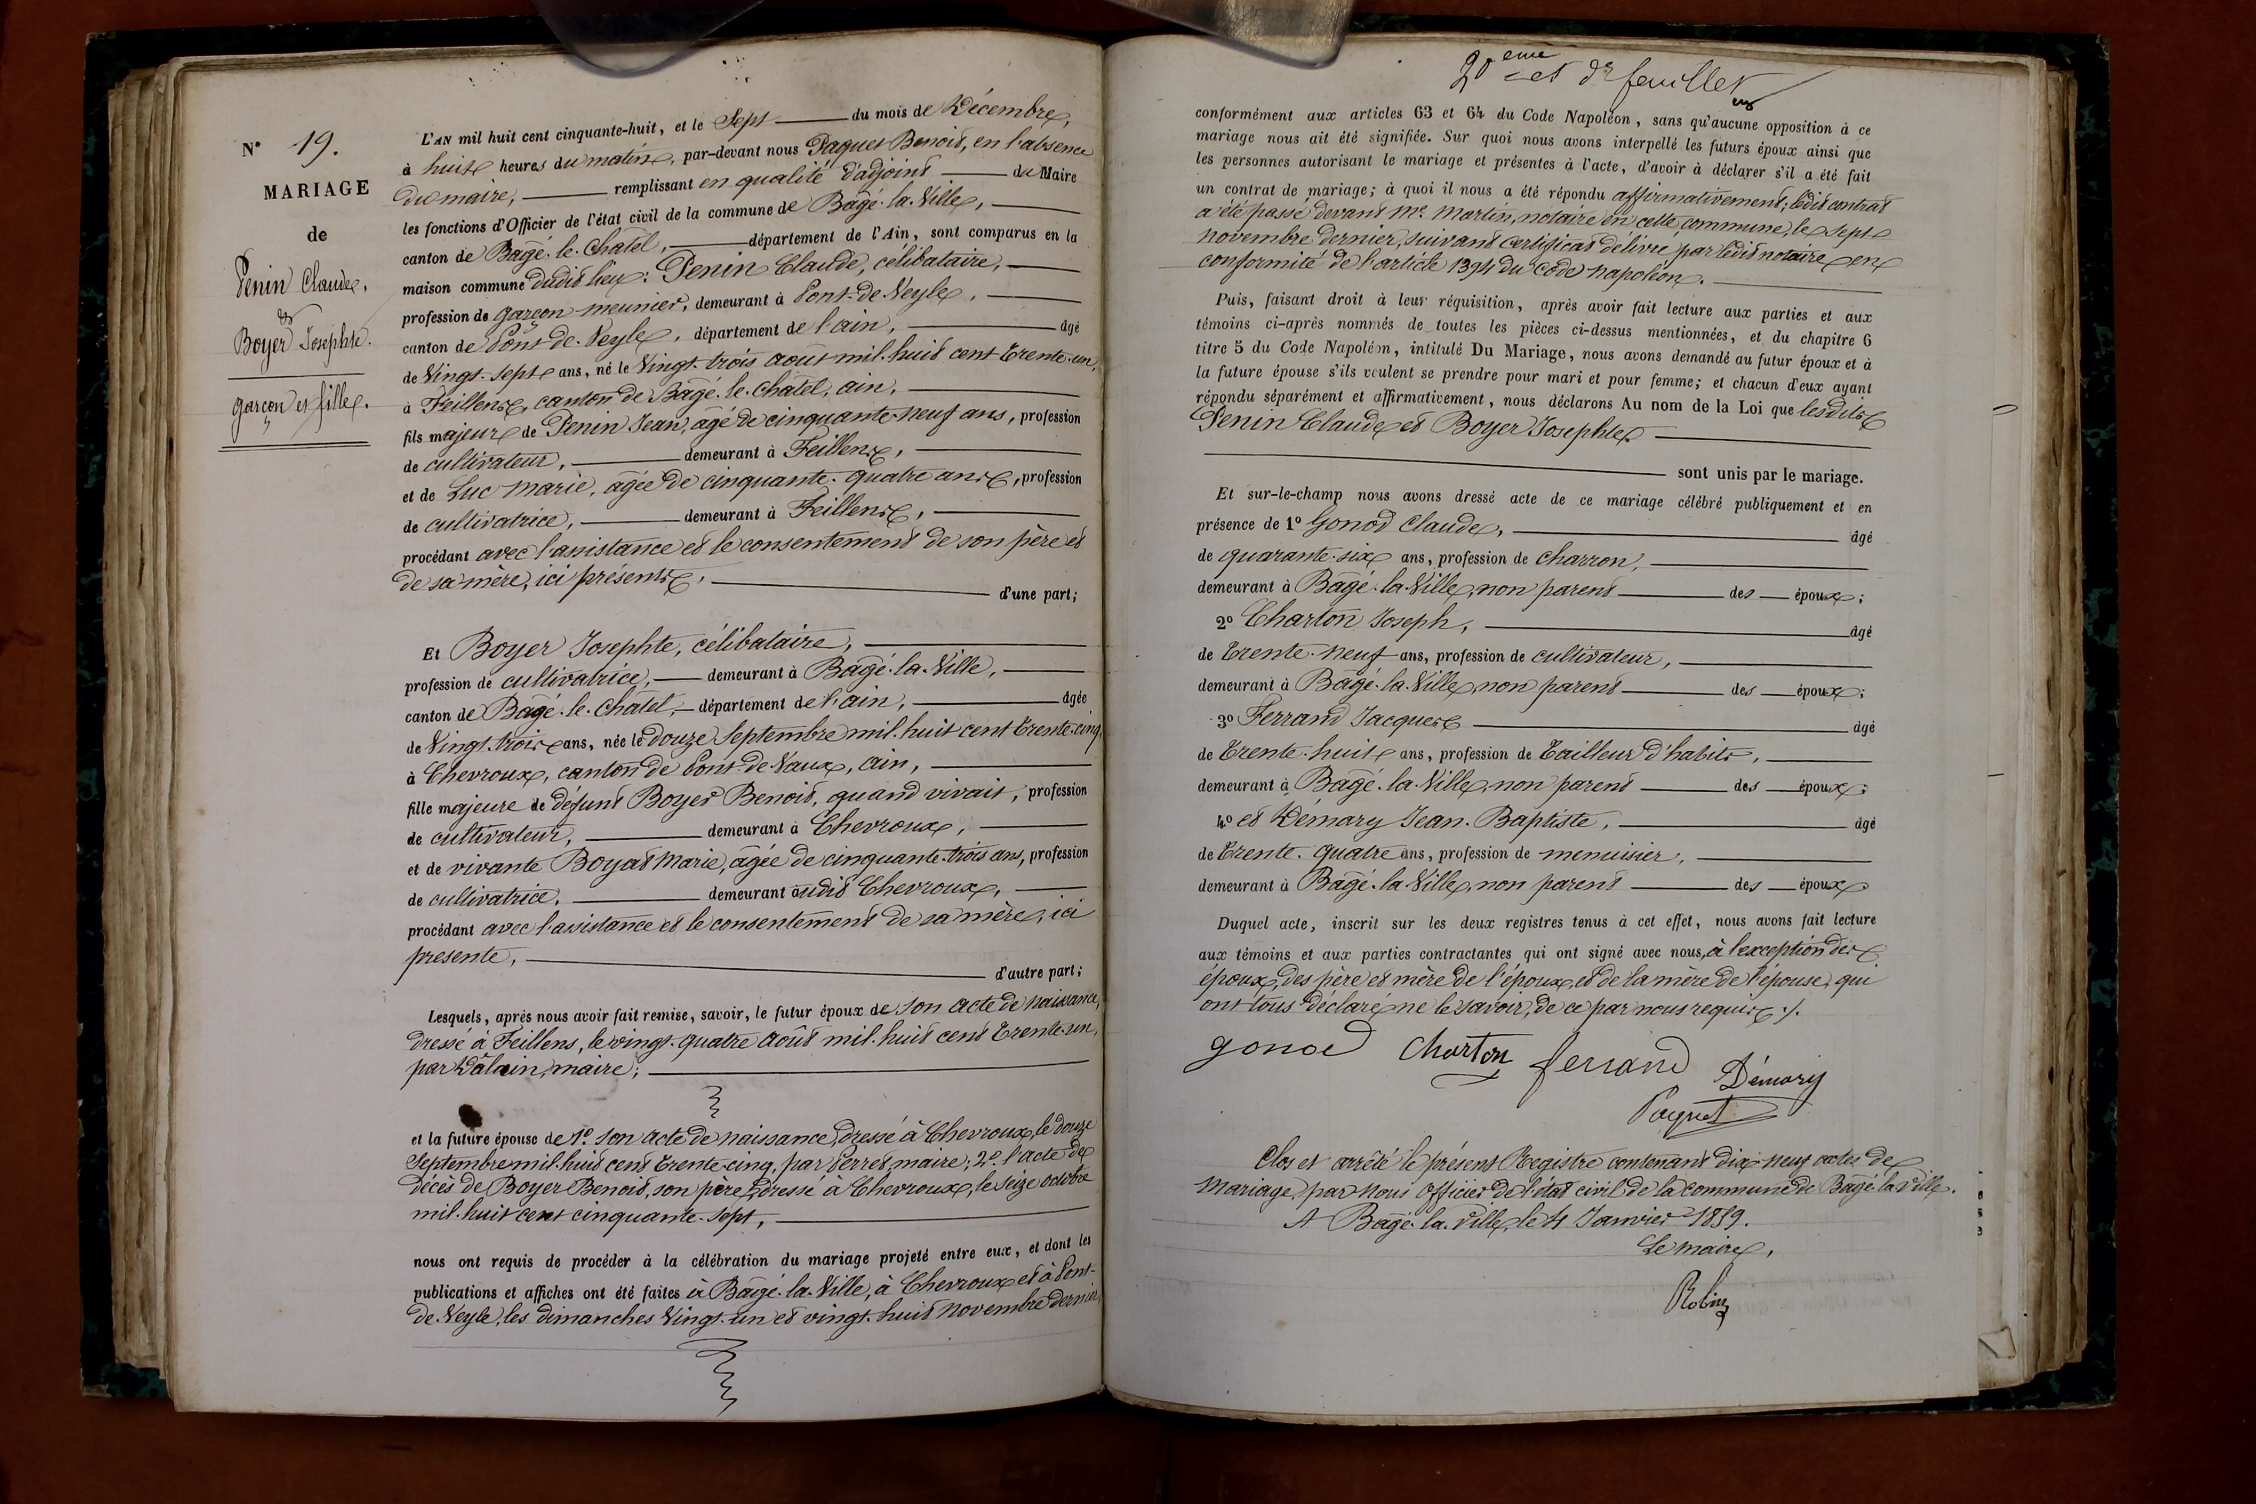 N° 19.
MARIAGE
de
Penin Claude,
et
Boyer Josephte.
garçon et fille.
L'AN mil huit cent cinquante-huit, et le Sept du mois de Décembre,
à huit heures du matin, par-devant nous Paquet Benoit, en l'absence
du maire, remplissant en qualité d'adjoint du Maire
les fonctions d'Officier de l'état civil de la commune de Bâgé-la-Ville,
canton de Bâgé-le-Châtel, département de l'Ain, sont comparus en la
maison commune dudit lieu : Penin Claude, célibataire,
profession de garçon meunier, demeurant à Pont-de-Veyle,
canton de Pont-de-Veyle, département de l'ain, âgé
de Vingt-sept ans, né le Vingt-trois août mil-huit cent trente-un,
à Feillens, canton de Bâgé-le-Châtel, ain,
fils majeur de Penin Jean, âgé de cinquante-neuf ans, profession
de cultivateur, demeurant à Feillens,
et de Luc Marie, âgée de cinquante-quatre ans, profession
de cultivatrice, demeurant à Feillens,
procédant avec l'assistance et le consentement de son père et
de sa mère, ici présents, d'une part;
Et Boyer Josephte, célibataire,
profession de cultivatrice, demeurant à Bâgé-la-Ville,
canton de Bâgé-le-Châtel, département de l'ain, âgée
de Vingt-trois ans, née le douze Septembre mil-huit cent trente-cinq,
à Chevroux, canton de Pont-de-Vaux, ain,
fille majeure de défunt Boyer Benoit, quand vivait, profession
de cultivateur, demeurant à Chevroux,
et de vivante Boyat Marie, âgée de cinquante-trois ans, profession
de cultivatrice, demeurant audit Chevroux,
procédant avec l'assistance et le consentement de sa mère, ici
présente, d'autre part;
Lesquels, après nous avoir fait remise, savoir, le futur époux de son acte de naissance,
dressé à Feillens, le vingt-quatre août mil-huit cent trente-un,
par maire;
et la future épouse de 1° son acte de naissance, dressé à Chevroux, le douze
Septembre mil-huit cent trente-cinq, par Perret, maire; 2° l'acte de
décès de Boyer Benoit, son père, dressé à Chevroux, le seize octobre
mil-huit cent cinquante-sept,
nous ont requis de procéder à la célébration du mariage projeté entre eux, et dont les
publications et affiches ont été faites à Bâgé-la-Ville, à Chevroux et à Pont-
de-Veyle, les dimanches Vingt-un et vingt-huit novembre dernier,
20eme et dr feuillet
conformément aux articles 63 et 64 du Code Napoléon, sans qu'aucune opposition à ce
mariage nous ait été signifiée. Sur quoi nous avons interpellé les futurs époux ainsi que
les personnes autorisant le mariage et présentes à l'acte, d'avoir à déclarer s'il a été fait
un contrat de mariage; à quoi il nous a été répondu affirmativement; ledit contrat
a été passé devant Me. Martin, notaire en cette commune, le sept
novembre dernier, suivant certificat délivré par ledit notaire en
conformité de l'article 1394 du code napoléon.
Puis, faisant droit à leur réquisition, après avoir fait lecture aux parties et aux
témoins ci-après nommés de toutes les pièces ci-dessus mentionnées, et du chapitre 6
titre 5 du Code Napoléon, intitulé Du Mariage, nous avons demandé au futur époux et à
la future épouse s'ils veulent se prendre pour mari et pour femme; et chacun d'eux ayant
répondu séparément et affirmativement, nous déclarons Au nom de la Loi que lesdits
Penin Claude et Boyer Josephte
sont unis par le mariage.
Et sur-le-champ nous avons dressé acte de ce mariage célébré publiquement et en
présence de 1° Gonod Claude, âgé
de quarante-six ans, profession de charron,
demeurant à Bâgé-la-Ville, non parent des époux;
2° Charton Joseph, âgé
de trente-neuf ans, profession de cultivateur,
demeurant à Bâgé-la-Ville, non parent des époux;
3° Ferrand Jacques âgé
de trente-huit ans, profession de tailleur d'habits,
demeurant à Bâgé-la-Ville, non parent des époux;
4° et Démary Jean-Baptiste, âgé
de trente-quatre ans, profession de menuisier,
demeurant à Bâgé-la-Ville, non parent des époux
Duquel acte, inscrit sur les deux registres tenus à cet effet, nous avons fait lecture
aux témoins et aux parties contractantes qui ont signé avec nous, à l'exception des
époux, des père et mère de l'époux, et de la mère de l'épouse, qui
ont tous déclaré ne le savoir, de ce par nous requis ./.
gonod Charton ferrand Démary
Paquet
Clos et arrêté le présent Registre contenant dix-neuf actes de
mariage, par nous officier de l'état civil de la commune de Bâgé-la-Ville.
A Bâgé-la-Ville, le 4 Janvier 1859.
Le maire,
Robin